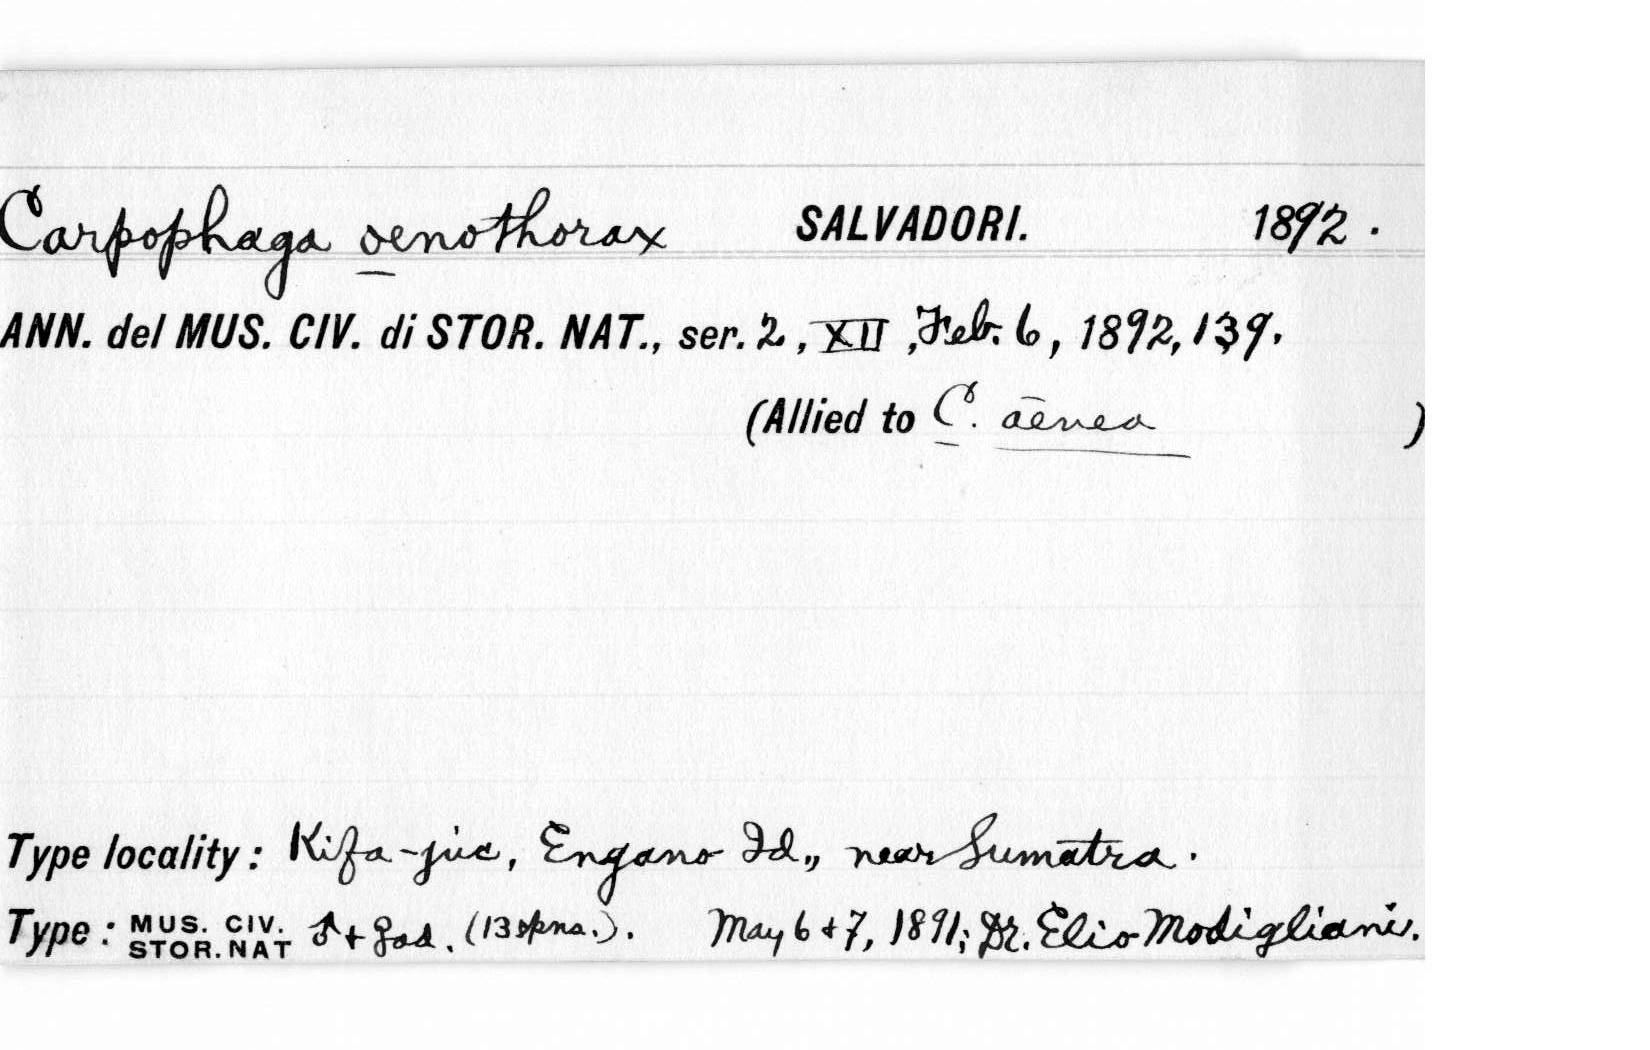 Carpophaga oenothorax SALVADORI. 1892.
ANN. del MUS. CIV. di STOR. NAT., ser. 2, XII, Feb. 6, 1892, 139.
(Allied to C. aēnea )
Type locality: Kifa-juc, Engano Id., near Sumatra.
Type: MUS. CIV. STOR. NAT ♂ + ♀ ad. (13 spns.). May 6 + 7, 1891; Dr. Elio Modigliani.